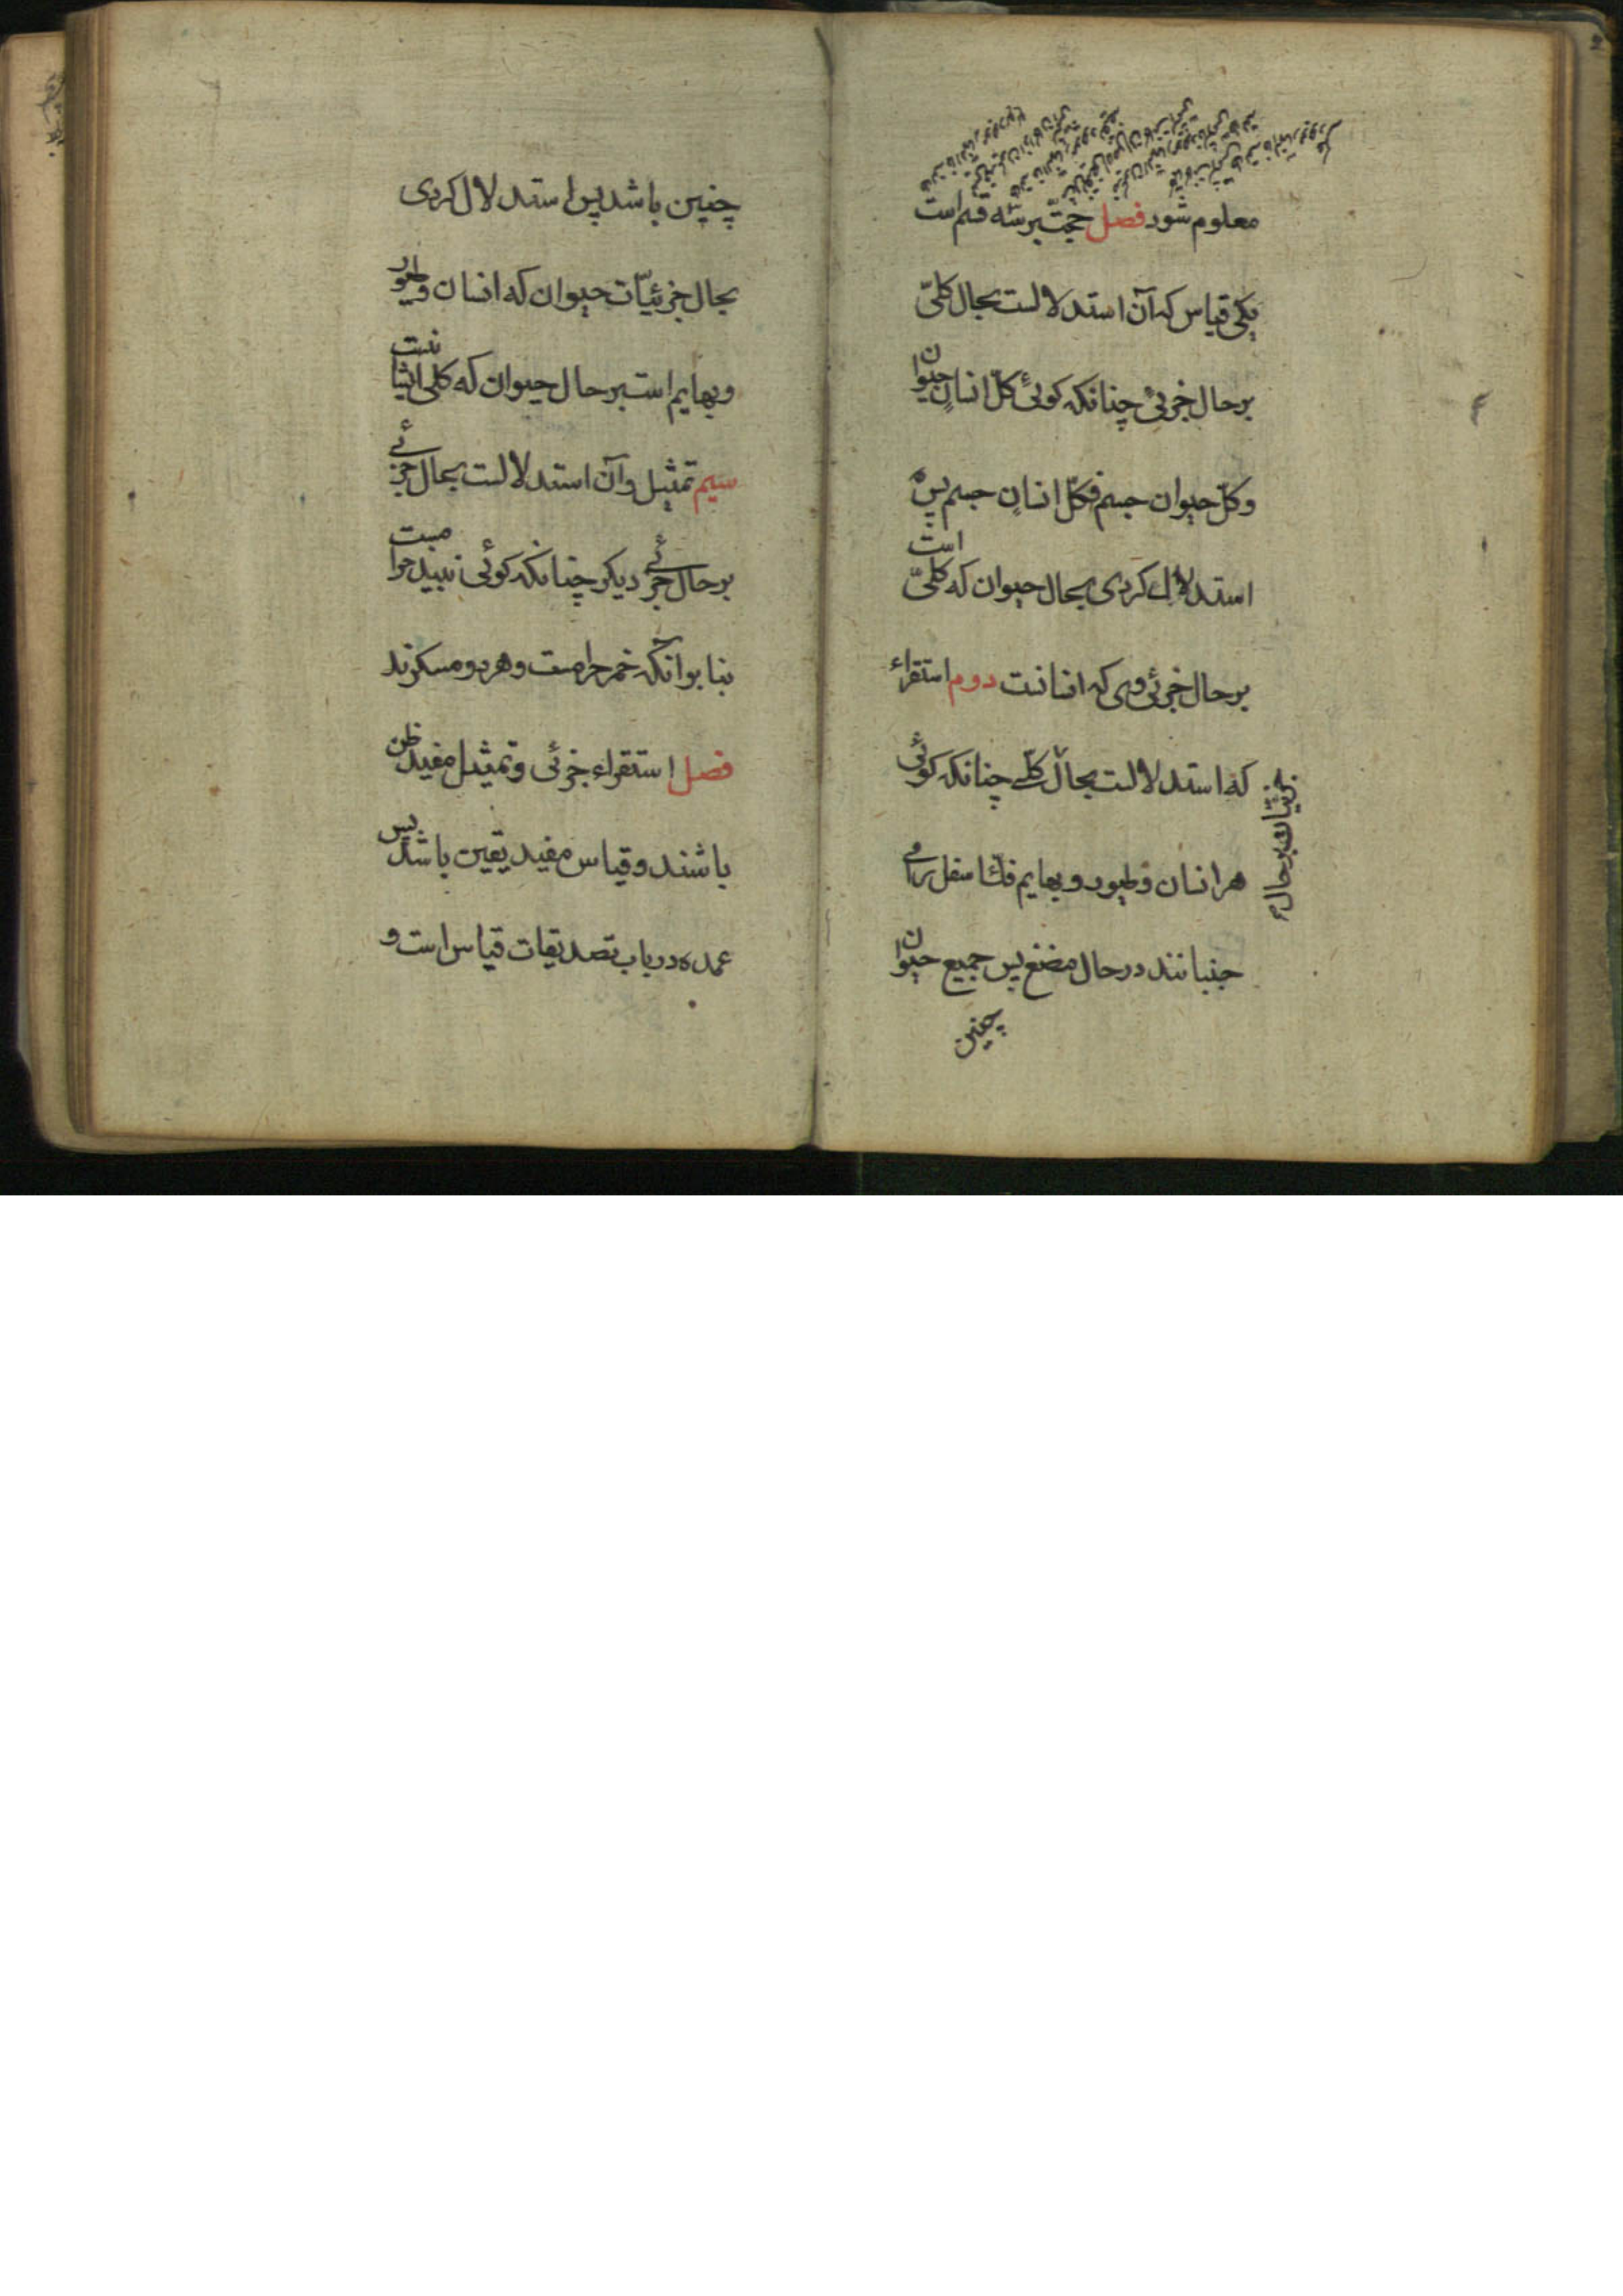 معلوم شود فصل حجّت بر سه قسم است
یکی قیاس که آن استدلالست بحال کلّی
بر حال جزئی چنانکه کوئی کلّ انسان حیوان
و کلّ حیوان جسم فکلّ انسان جسم پس
استدلال کردی بحال حیوان که کلّی است
بر حال جزئی وی که انسانست دوم استقراء
که استدلالست بحال کلّی چنانکه کوئی
جزئیات بر حال
هر انسان و طیور و بهایم فک اسفل را می
جنبانند در حال مضغ پس جمیع حیوان
چنین
چنین باشد پس استدلال کردی
بحال جزئیّات حیوان که انسان و طیور
و بهایم است بر حال حیوان که کلی ایشانست
سیم تمثیل و آن استدلالست بحال جزئی
بر حال جزئی دیکر چنانکه کوئی نبیذ حرامست
بنا بر انکه خمر حرامست و هر دو مسکرند
فصل استقراء جزئی و تمثیل مفید ظن
باشند و قیاس مفید یقین باشد پس
عمده در باب تصدیقات قیاس است و